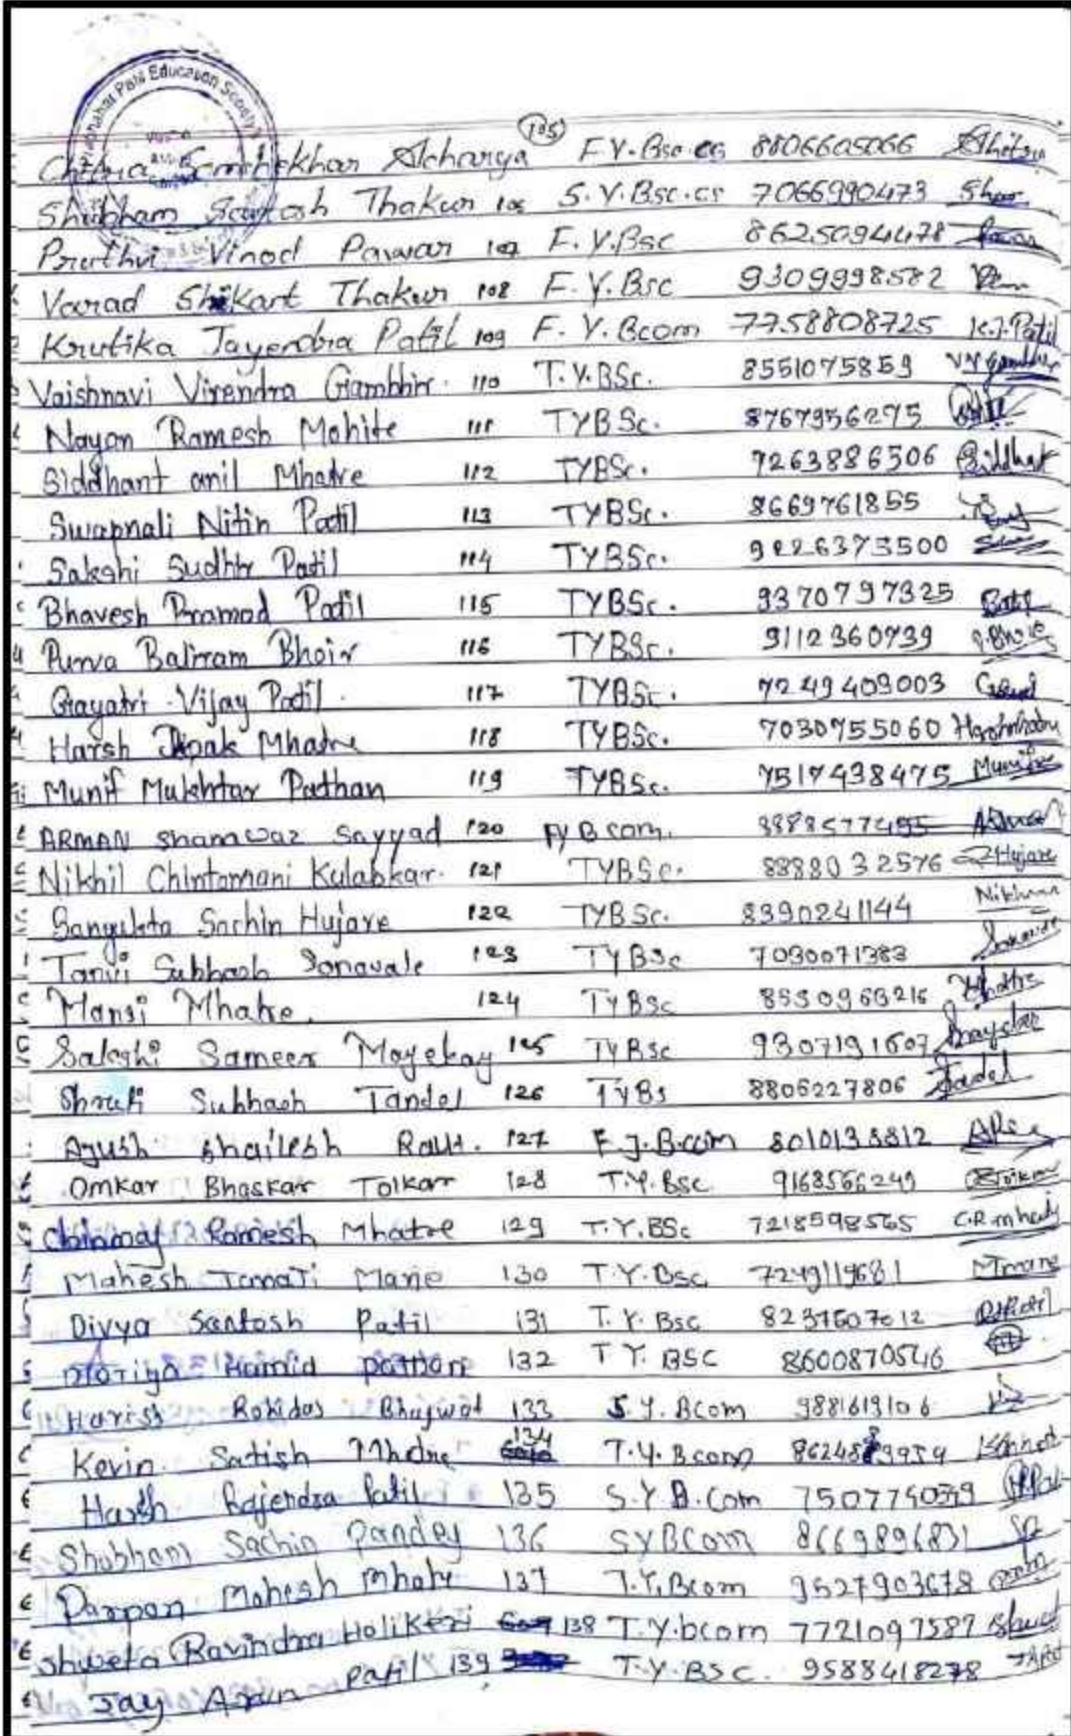 Education Society
105
Chitra Acharya F.Y.Bsc.cs 8806605066
Shubham Thakur 106 S.Y.Bsc.cs 7066990473
Pruthvi Vinod Pawar 107 F.Y.Bsc 8625094478
Varad Thakur 108 F.Y.Bsc 9309998582
Krutika Jayendra Patil 109 F.Y.Bcom 7758808725 K.J.Patil
Vaishnavi Virendra Gambhir. 110 T.Y.BSc. 8551075859
Nayan Ramesh Mohite 111 TYBSc. 8767956275
Siddhant anil Mhatre 112 TYBSc. 7263886506 Siddhant
Swapnali Nitin Patil 113 TYBSc. 8669761855
Sakshi Sudhir Patil 114 TYBSc.
Bhavesh Pramod Patil 115 TYBSc. 9370797325
Purva Baliram Bhoir 116 TYBSc. 9112360739
Gayatri Vijay Patil. 117 TYBSc. 7249409003
Harsh Mhatre 118 TYBSc. 7030755060
Munif Mukhtar Pathan 119 TYBSc. 7517438475 Munif
ARMAN Shamwaz Sayyad 120 FYBcom.
Nikhil Chintamani Kulabkar. 121 TYBSc. 8888032576 Hujare
Sachin Hujare 122 TYBSc. 8390241144
Tanvi Subhash Sonavale 123 TYBSc 7030071383
Mansi Mhatre. 124 TYBSc
Sakshi Sameer 125 TYBSc 9307191607
Shruti Subhash Tandel 126 TYBS 8806227806 Tandel
Ayush Shailesh Raut. 127 F.Y.B.com
Omkar Bhaskar Tolkar 128 T.Y.BSc
Chinmay Ramesh Mhatre 129 T.Y.BSc 7218598565
Mahesh Tanaji Mane 130 T.Y.Bsc MTmane
Divya Santosh Patil 131 T.Y.Bsc 8237607012
Hamid pathan 132 T Y. BSC 8600870546
Harish Rohidas 133 S.Y.Bcom 9881619106
Kevin Satish Mhatre 134 T.Y.Bcom
Harsh Rajendra Patil 135 S.Y.B.Com
Shubham Sachin Pandey 136 SYBCom 8669896831 SP
Darpan Mahesh Mhatre 137 T.Y.Bcom 9527903678
Shweta Ravindra Holikeri 138 T.Y.bcom 7721097587
Jay Arun patil 139 T.Y.BSC. 9588418278